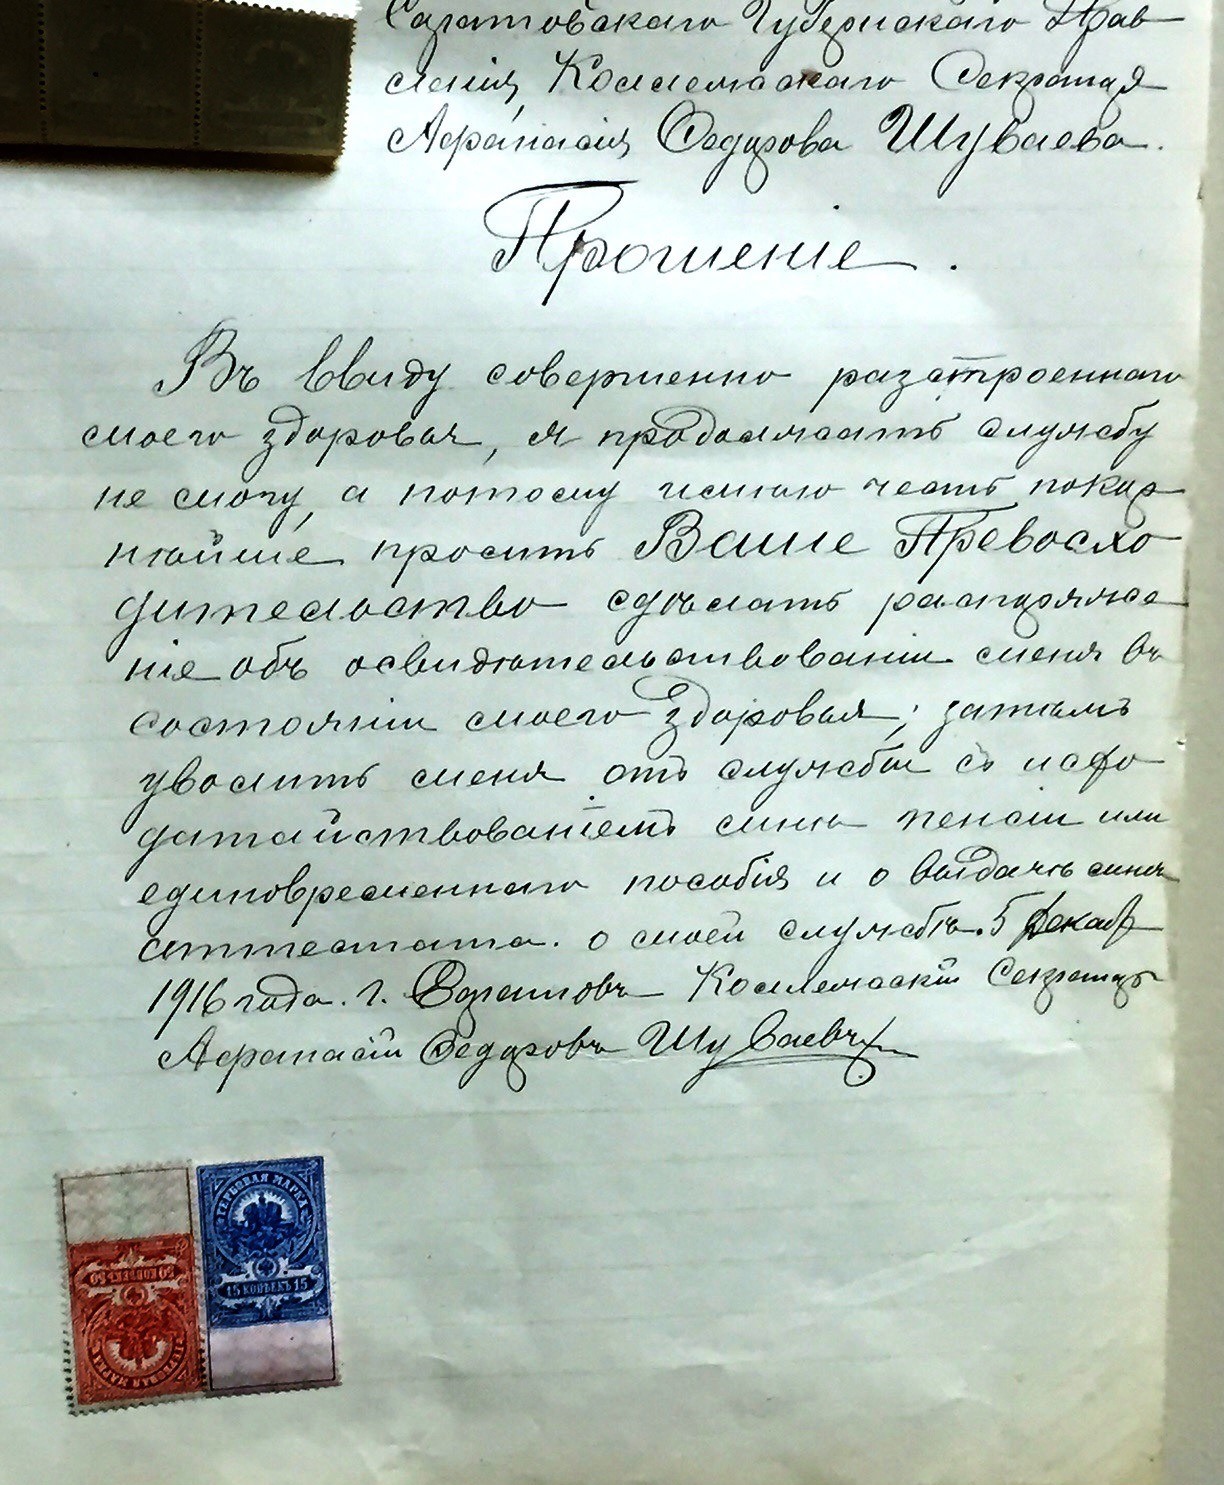 Саратовскаго Губернскаго Прав
ленія, Коллежскаго Секретаря
Афанасія Федорова Шуваева.
Прошеніе.
Въ ввиду совершенно разстроеннаго
моего здоровья, я продолжать службу
не могу, а потому имѣю честь покор
нѣйше просить Ваше Превосхо
дительство сдѣлать распоряже
ніе объ освидѣтельствованіи меня въ
состояніи моего здоровья; затѣмъ
уволить меня отъ службы съ исхо
датайствованіемъ мнѣ пенсіи или
единовременнаго пособія и о выдачѣ мнѣ
аттестата о моей службѣ. 5 Декабр
1916 года. г. Саратовъ Коллежскій Секретарь
Афанасій Федоровъ Шуваевъ
ГЕРБОВАЯ МАРКА
15 КОПѢЕКЪ 15
20 КОПѢЕКЪ 20
ГЕРБОВАЯ МАРКА